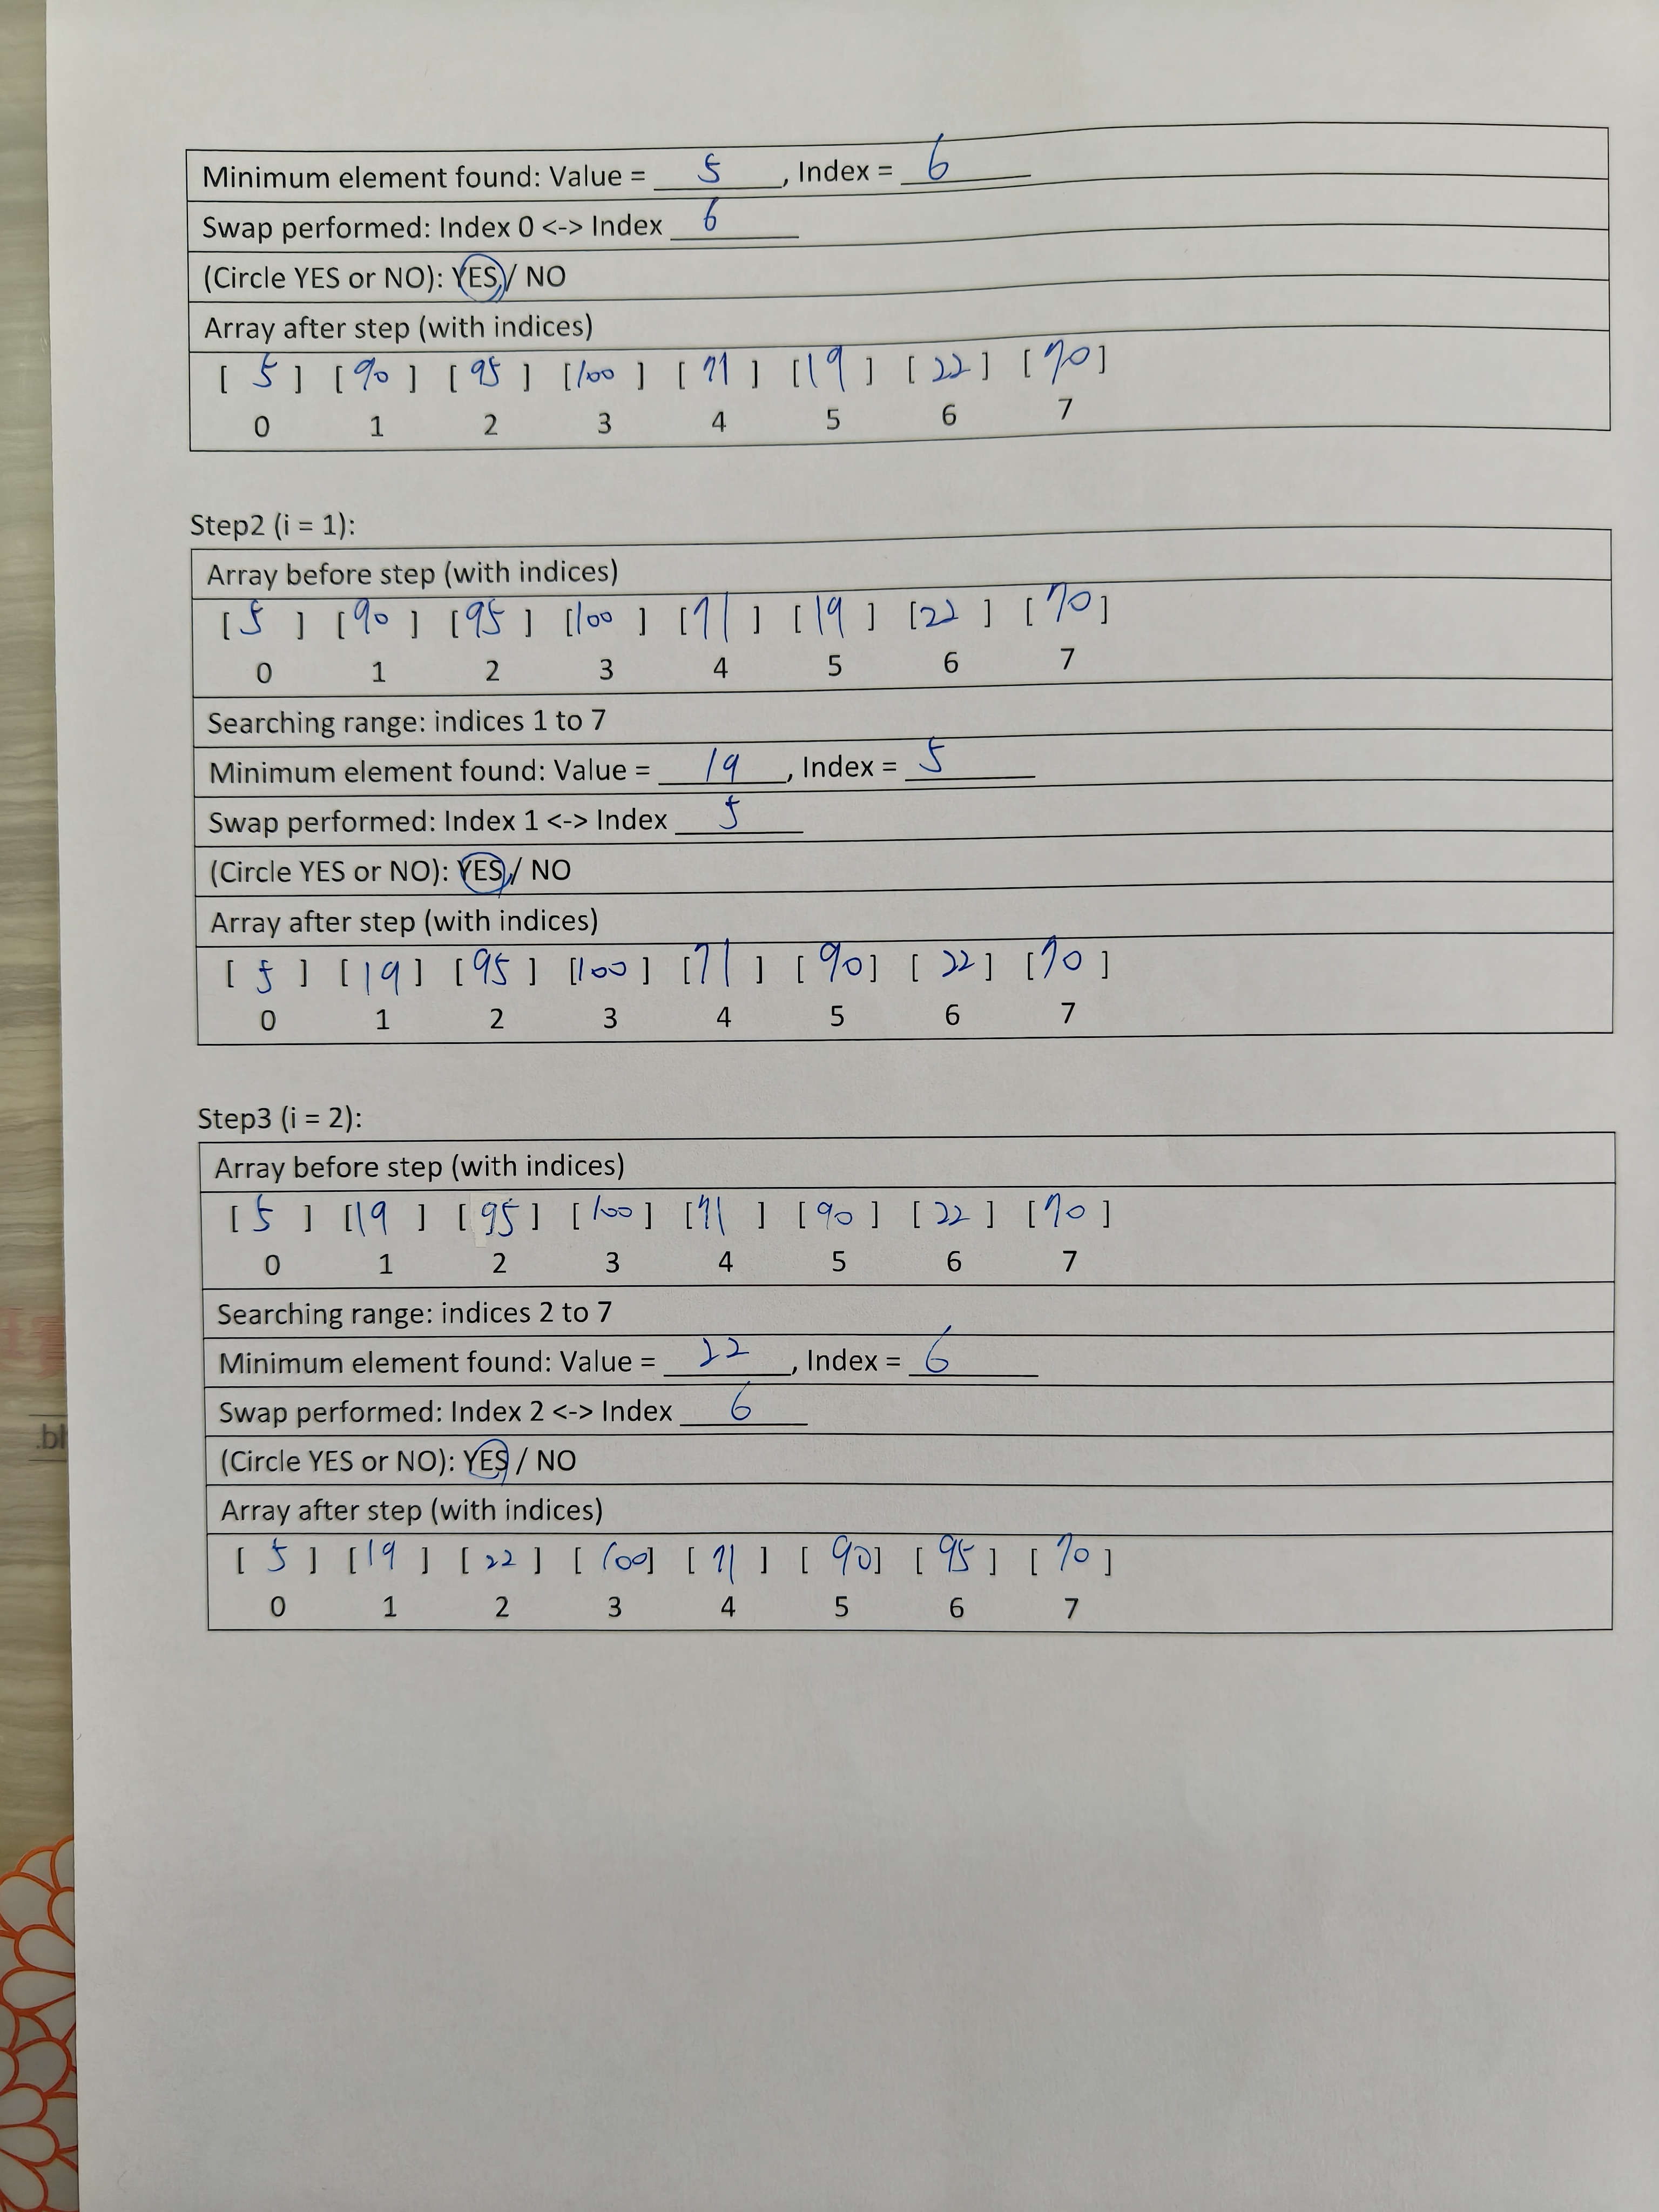 Minimum element found: Value = 5, Index = 6
Swap performed: Index 0 <-> Index 6
(Circle YES or NO): YES / NO
Array after step (with indices)
[ 5 ] [ 90 ] [ 95 ] [ 100 ] [ 71 ] [ 19 ] [ 22 ] [ 70 ]
0 1 2 3 4 5 6 7
Step2 (i = 1):
Array before step (with indices)
[ 5 ] [ 90 ] [ 95 ] [ 100 ] [ 71 ] [ 19 ] [ 22 ] [ 70 ]
0 1 2 3 4 5 6 7
Searching range: indices 1 to 7
Minimum element found: Value = 19, Index = 5
Swap performed: Index 1 <-> Index 5
(Circle YES or NO): YES / NO
Array after step (with indices)
[ 5 ] [ 19 ] [ 95 ] [ 100 ] [ 71 ] [ 90 ] [ 22 ] [ 70 ]
0 1 2 3 4 5 6 7
Step3 (i = 2):
Array before step (with indices)
[ 5 ] [ 19 ] [ 95 ] [ 100 ] [ 71 ] [ 90 ] [ 22 ] [ 70 ]
0 1 2 3 4 5 6 7
Searching range: indices 2 to 7
Minimum element found: Value = 22, Index = 6
Swap performed: Index 2 <-> Index 6
(Circle YES or NO): YES / NO
Array after step (with indices)
[ 5 ] [ 19 ] [ 22 ] [ 100 ] [ 71 ] [ 90 ] [ 95 ] [ 70 ]
0 1 2 3 4 5 6 7